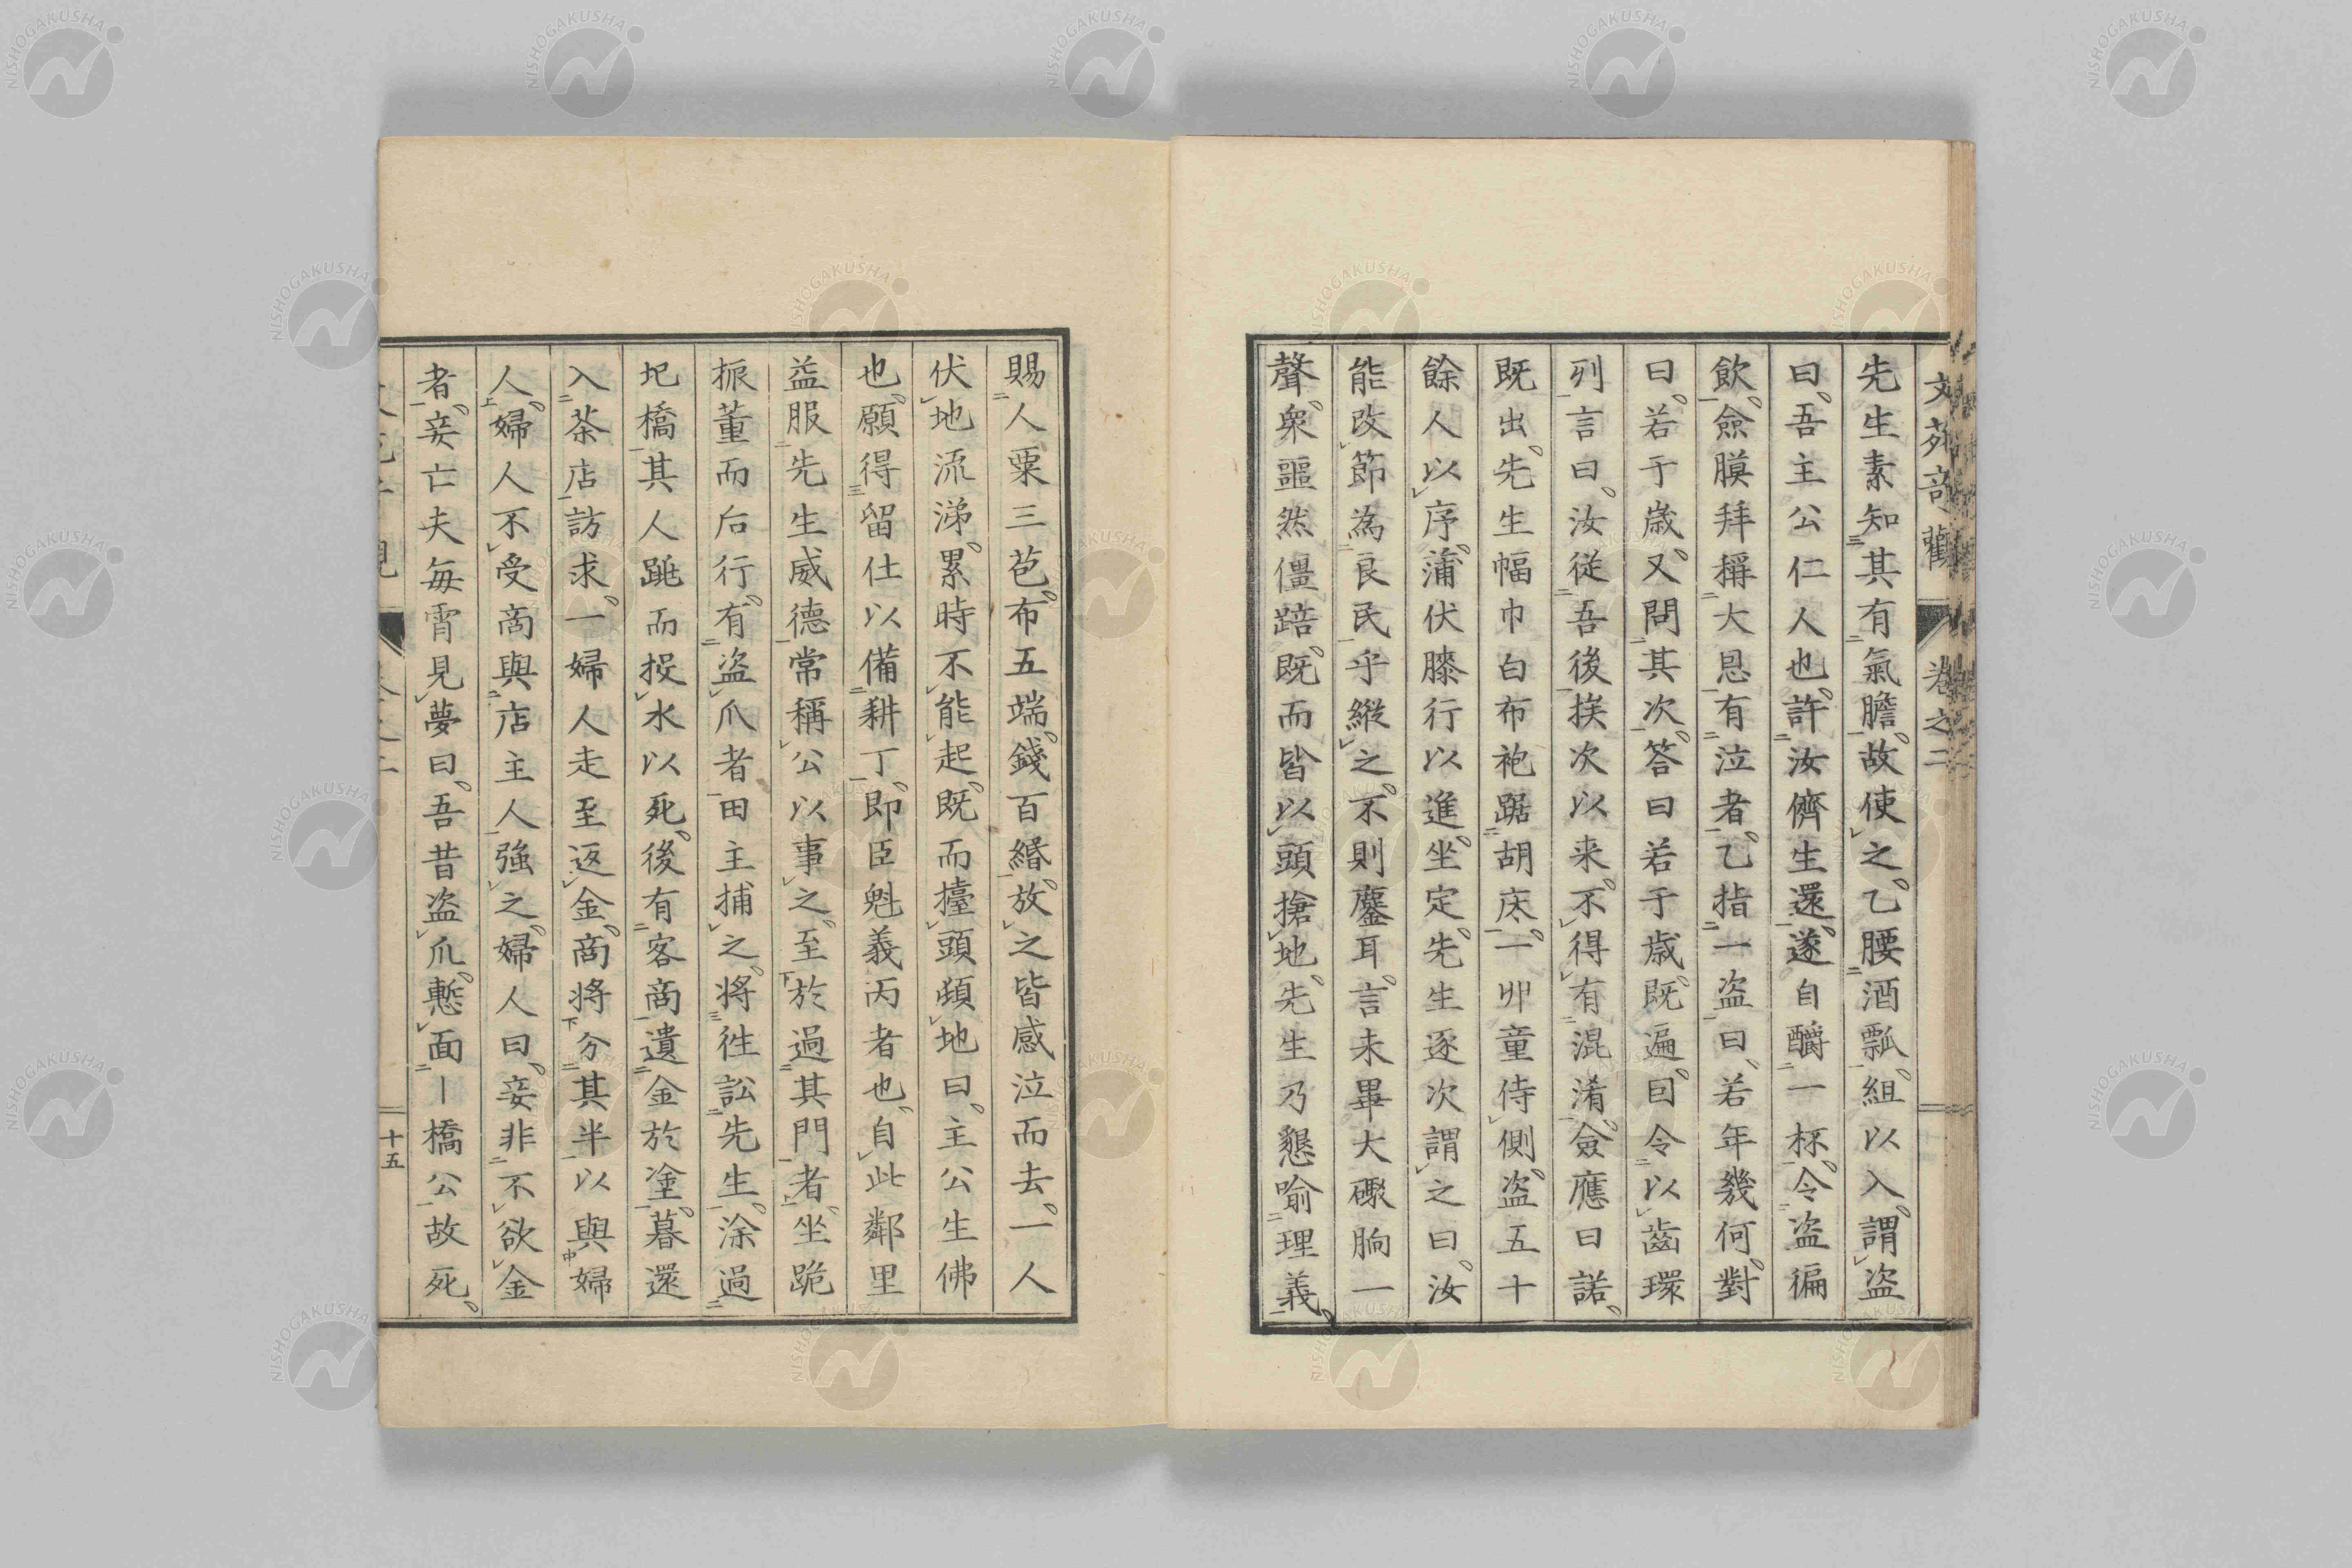 文苑奇觀 卷之二
先生素知其有氣膽故使之乙腰酒瓢組以入謂盗
曰吾主公仁人也許汝儕生還遂自釂一杯令盗徧
飲僉膜拜稱大恩有泣者乙指一盗曰若年幾何對
曰若于歳又問其次答曰若于歳既遍囙令以齒環
列言曰汝従吾後挨次以来不得有混淆僉應曰諾
既出先生幅巾白布袍踞胡床一丱童侍側盗五十
餘人以序蒲伏膝行以進坐定先生逐次謂之曰汝
能改節為良民乎縦之不則鏖耳言未畢大礮胸一
聲衆噩然僵踣既而皆以頭搶地先生乃懇喻理義
賜人粟三苞布五端錢百緡放之皆感泣而去一人
伏地流涕累時不能起既而擡頭頻地曰主公生佛
也願得留仕以備耕丁即臣魁義丙者也自此鄰里
益服先生威德常稱公以事之至於過其門者坐跪
振董而后行有盗爪者田主捕之将徃訟先生涂過
圯橋其人跳而投水以死後有客商遺金於塗暮還
入茶店訪求一婦人走至返金商将分其半以與婦
人婦人不受商與店主人強之婦人曰妾非不欲金
者妾亡夫毎霄見夢曰吾昔盗爪慙面丨橋公故死
十五
NISHOGAKUSHA